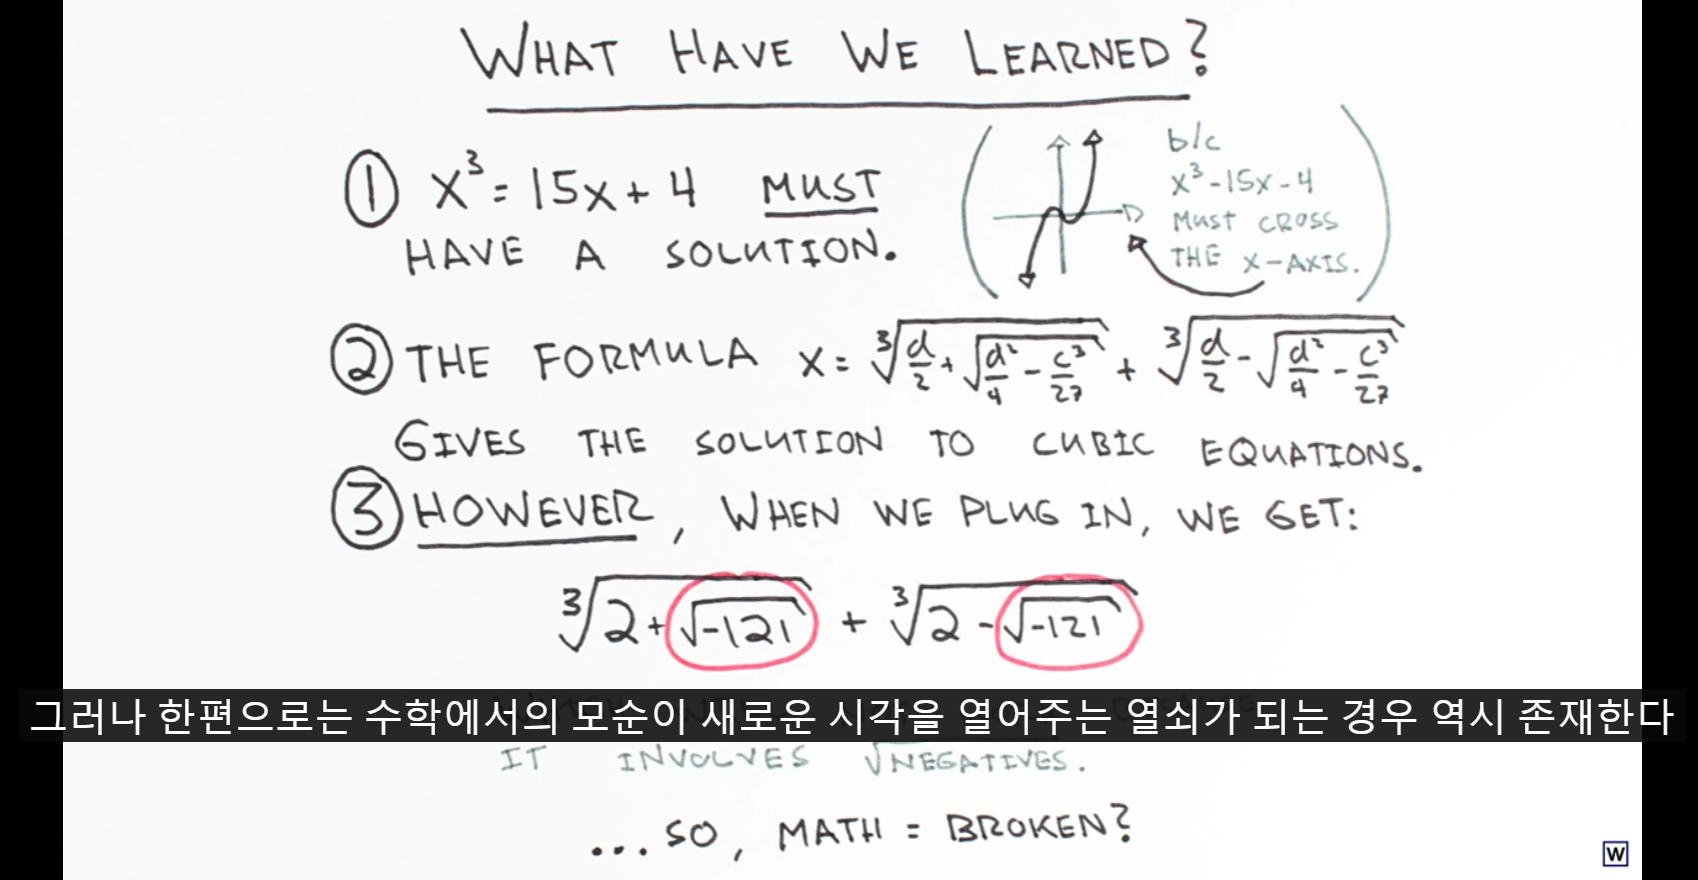 WHAT HAVE WE LEARNED?
① x³ = 15x + 4 MUST
HAVE A SOLUTION.
b/c
x³-15x-4
MUST CROSS
THE X-AXIS.
② THE FORMULA x = ∛(d/2 + √(d²/4 - c³/27)) + ∛(d/2 - √(d²/4 - c³/27))
GIVES THE SOLUTION TO CUBIC EQUATIONS.
③ HOWEVER, WHEN WE PLUG IN, WE GET:
∛(2 + √-121) + ∛(2 - √-121)
그러나 한편으로는 수학에서의 모순이 새로운 시각을 열어주는 열쇠가 되는 경우 역시 존재한다
IT INVOLVES √NEGATIVES.
...SO, MATH = BROKEN?
W